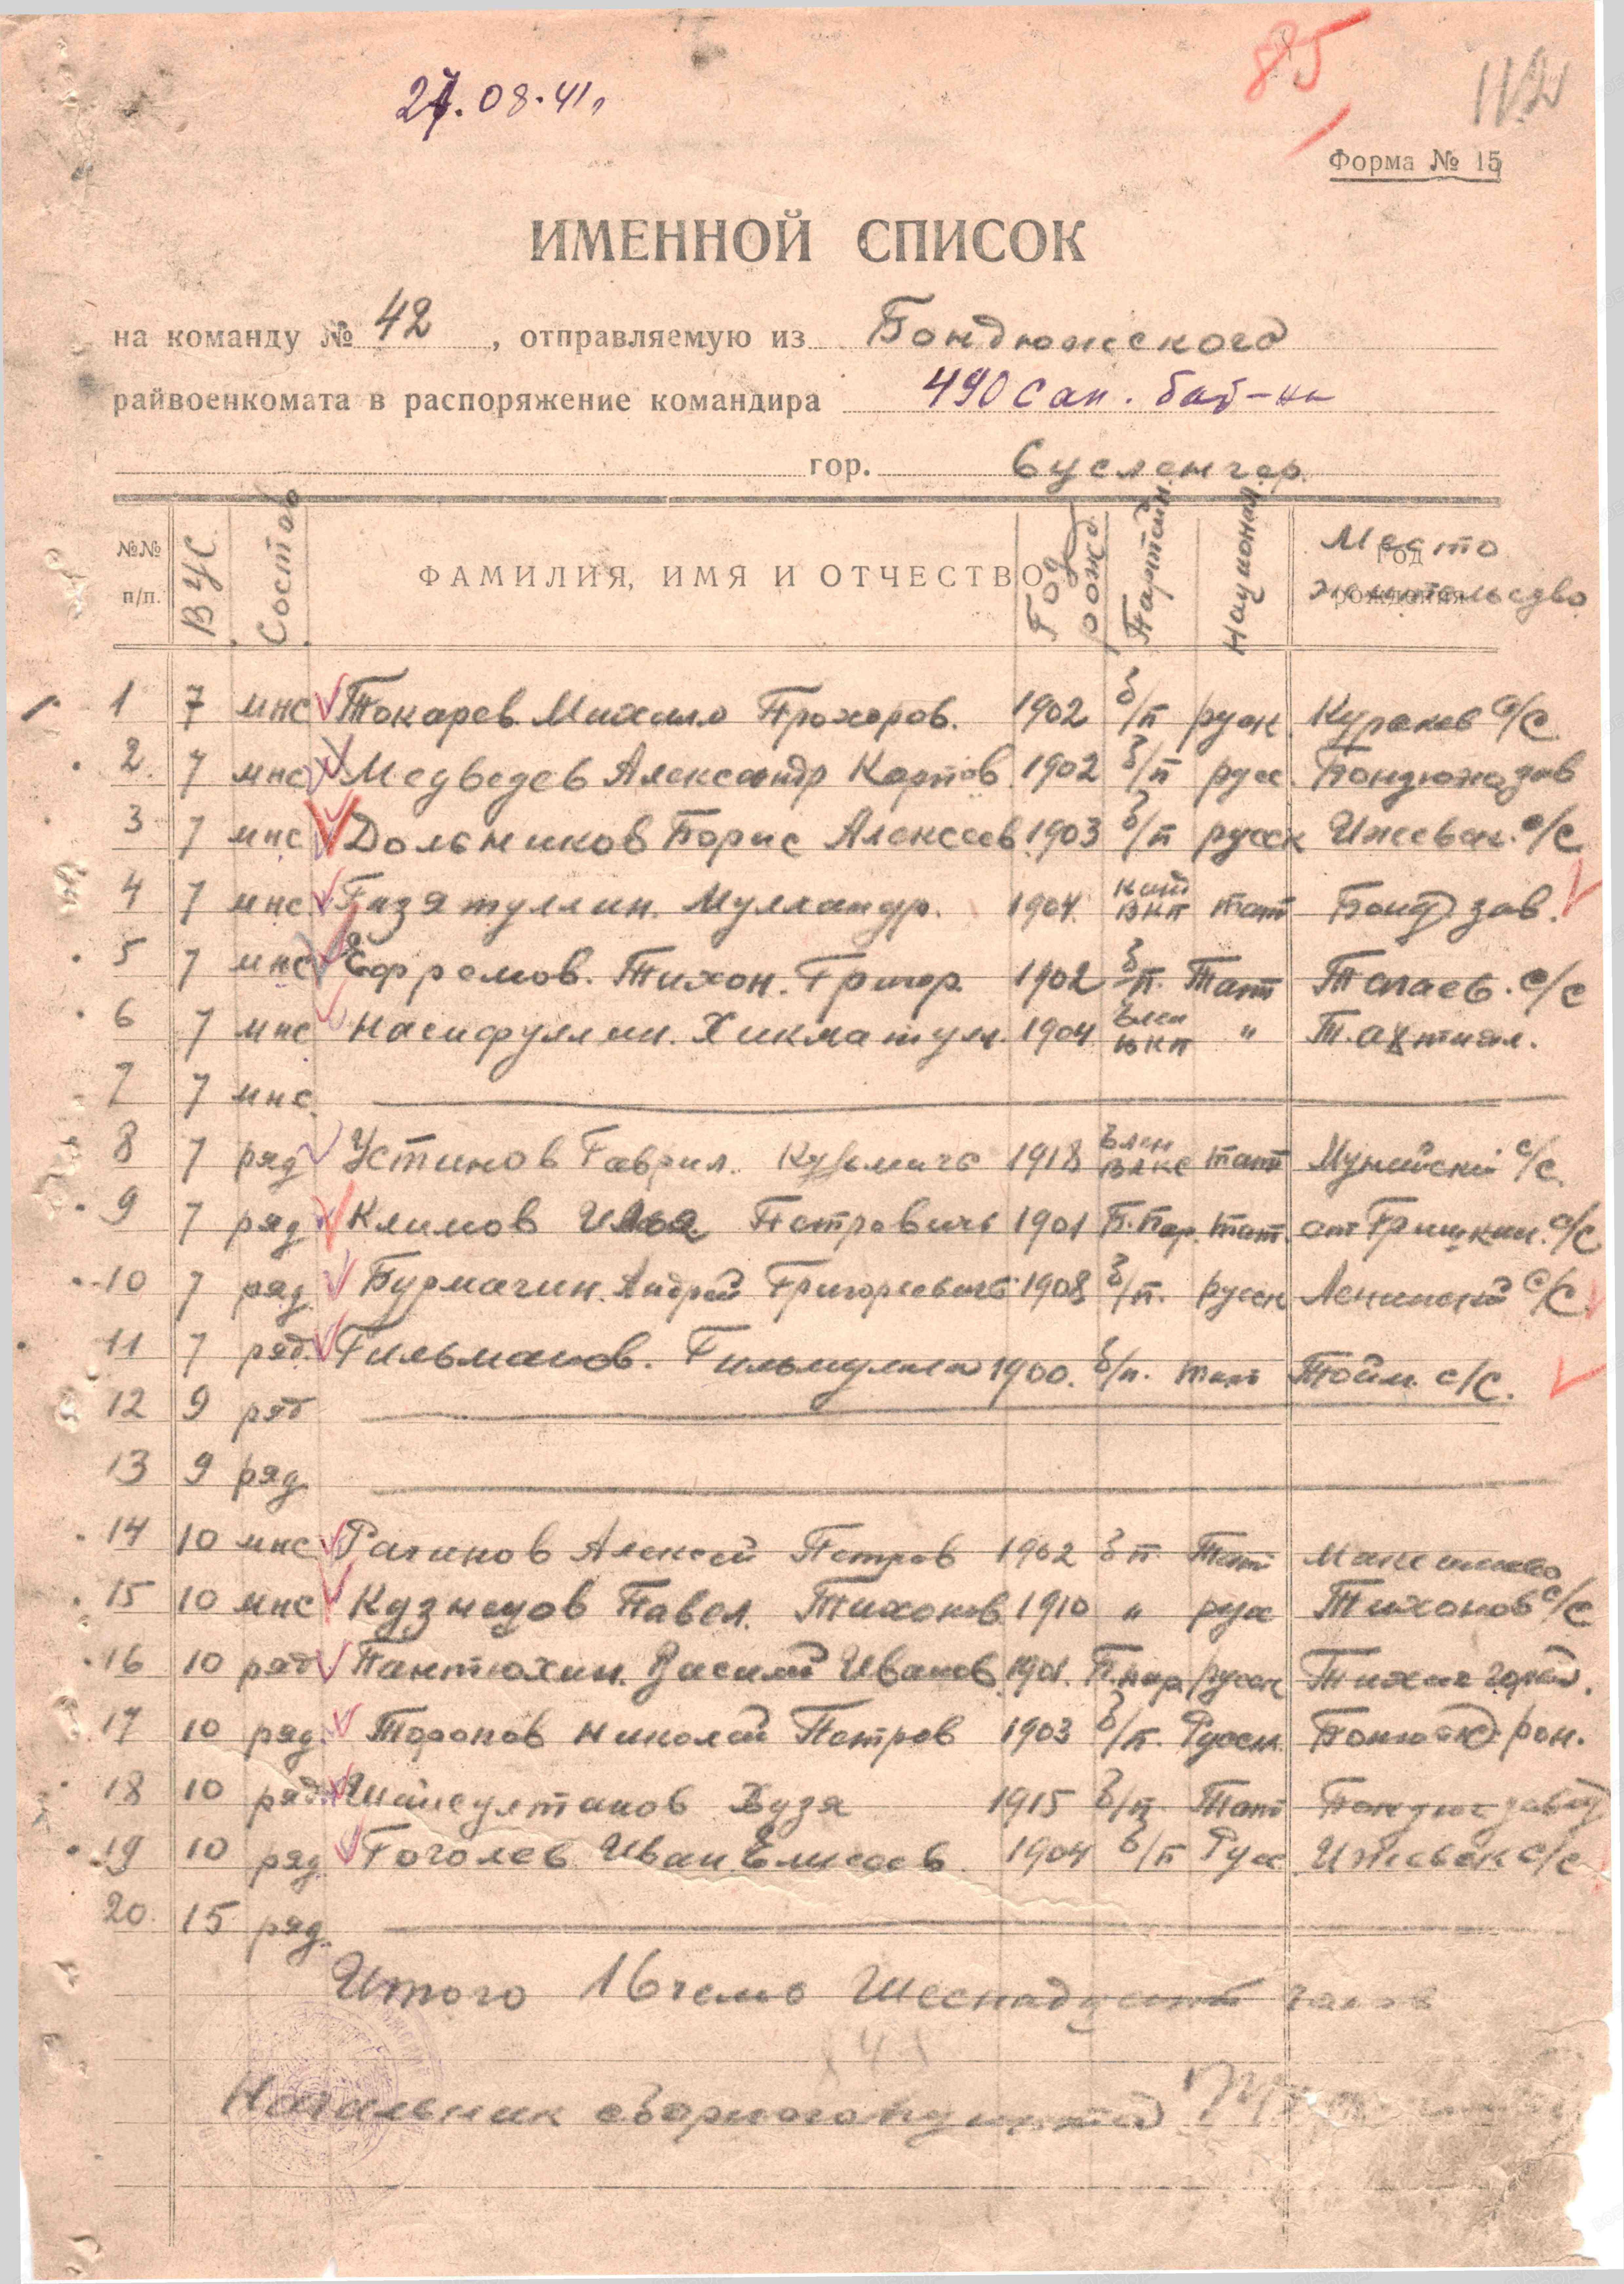 85
112
27.08.41г
Форма № 15
ИМЕННОЙ СПИСОК
на команду № 42, отправляемую из Бондюжского
райвоенкомата в распоряжение командира 490 сап. бат-на
гор. Суслонгер
№№ п/п. ВУС Состав ФАМИЛИЯ, ИМЯ И ОТЧЕСТВО Год рожд Партийн. Национал. Место жительсдво
1 7 мнс Токарев Михаило Прохоров. 1902 б/п руск Кураков с/с
2. 7 мнс Медведев Александр Карпов 1902 б/п русс. Бондюжзав
3 7 мнс Дольников Борис Алексеев 1903 б/п русск Ижевск. с/с
4 7 мнс Гизятуллин. Мулланур. 1904 канд ВКП тат Бонд зав.
5 7 мнс Ефремов. Тихон. Григор. 1902 б/п. Тат Тагаев. с/с
6 7 мнс Насифуллин. Хикматул. 1904 Член ВКП " Т.
7 7 мнс.
8 7 ряд Устинов Гаврил. Кузьмичь 1918 Член ВЛКС тат Мунайский с/с.
9 7 ряд Климов Илья Петровичь 1901 Б.пар. тат. от Гришкин. с/с
10 7 ряд Бурмагин. Андрей Григорьевичь 1908 б/п. русск Ленинский с/с
11 7 ряд. Гильманов. Гильмулла 1900. б/п. тат Тойм. с/с.
12 9 ряд
13 9 ряд
14 10 мнс Рагинов Алексей Петров 1902 б п. Тат
15 10 мнс Кузнецов Павел. Тихонов. 1910 " русс Тихонов с/с
16 10 ряд Пантюхин. Василий Иванов. 1901. Б.пар русск Тихие горы.
17 10 ряд. Торопов Николай Петров 1903 б/п. Русск.
18 10 ряд. Шайсултанов Хузя 1915 б/п Тат Бондюжзавод
19 10 ряд Гоголев Иван Елисеев 1904 б/п Русс Ижевск с/с
20. 15 ряд.
Итого 16 чело Шеснадцать челов
Начальник сборного пункта